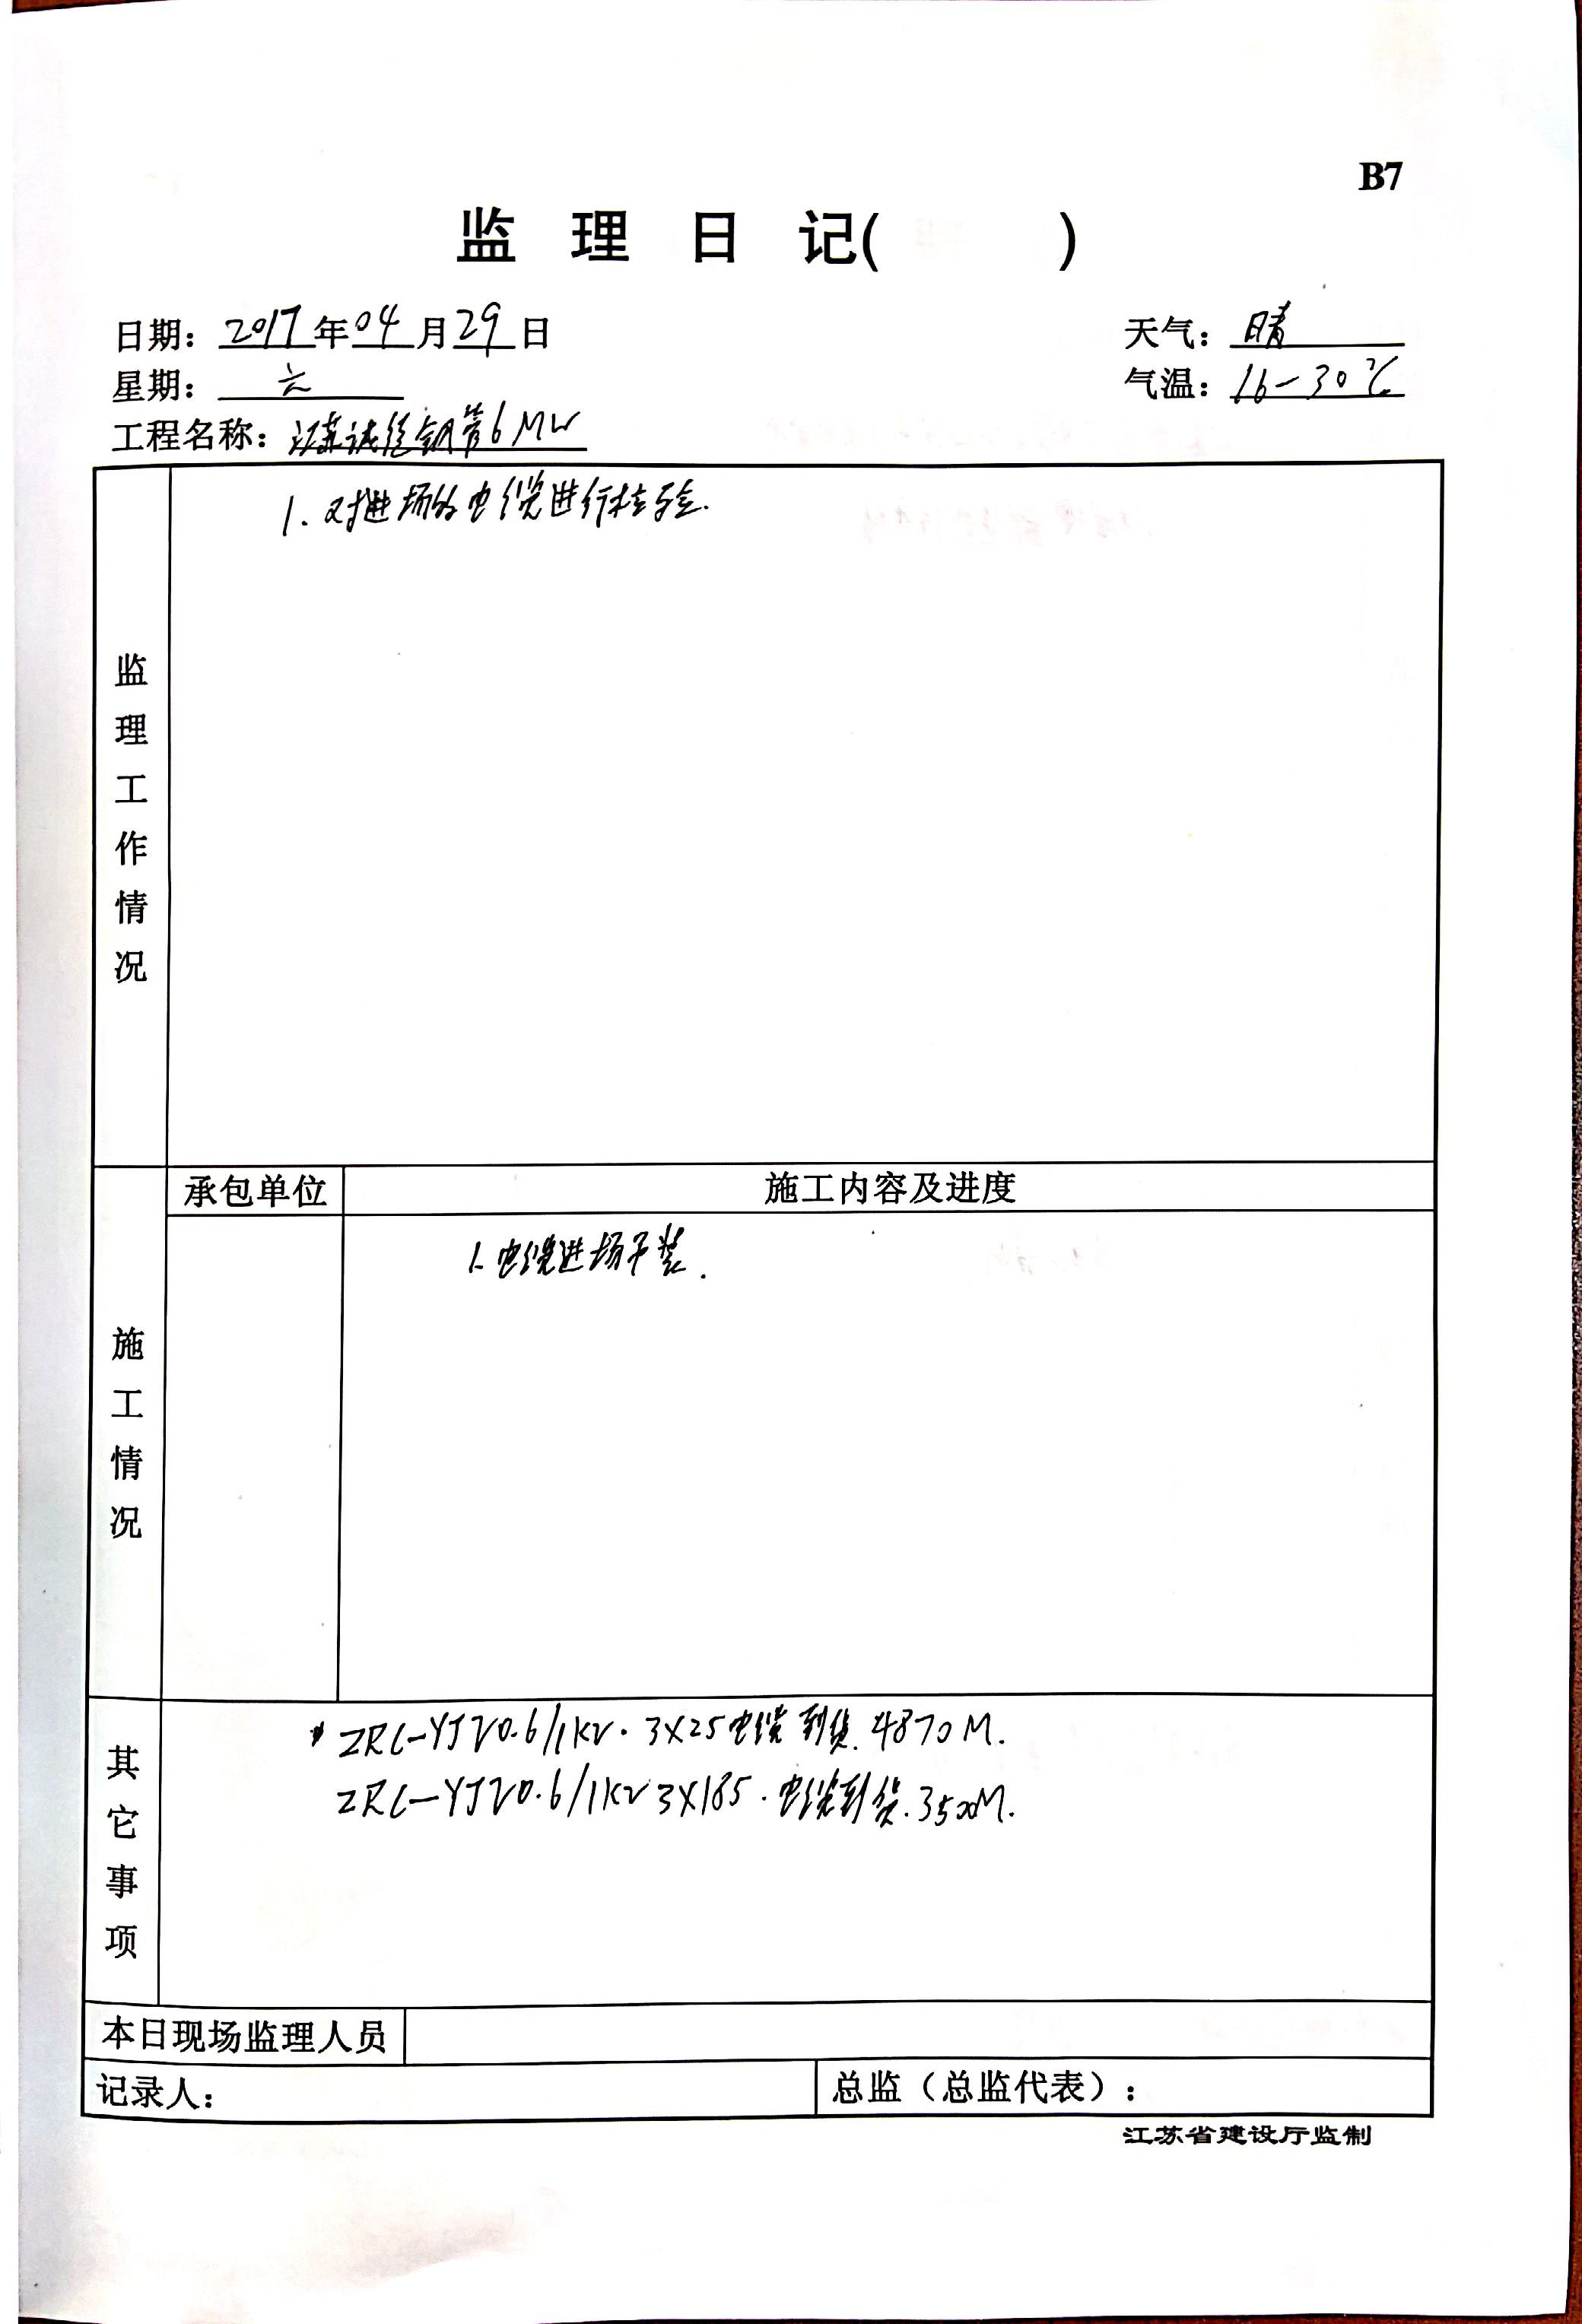 B7
监 理 日 记( )
日期：2017年04月29日
天气：晴
星期：六
气温：16-30℃
工程名称：江苏诚德钢管6MW
监理工作情况
1.对进场的电缆进行检验.
承包单位
施工内容及进度
施工情况
1.电缆进场吊装.
其它事项
ZRC-YJV0.6/1KV.3X25电缆到货.4870M.
ZRC-YJV0.6/1KV3X185.电缆到货.3500M.
本日现场监理人员
记录人：
总监（总监代表）：
江苏省建设厅监制